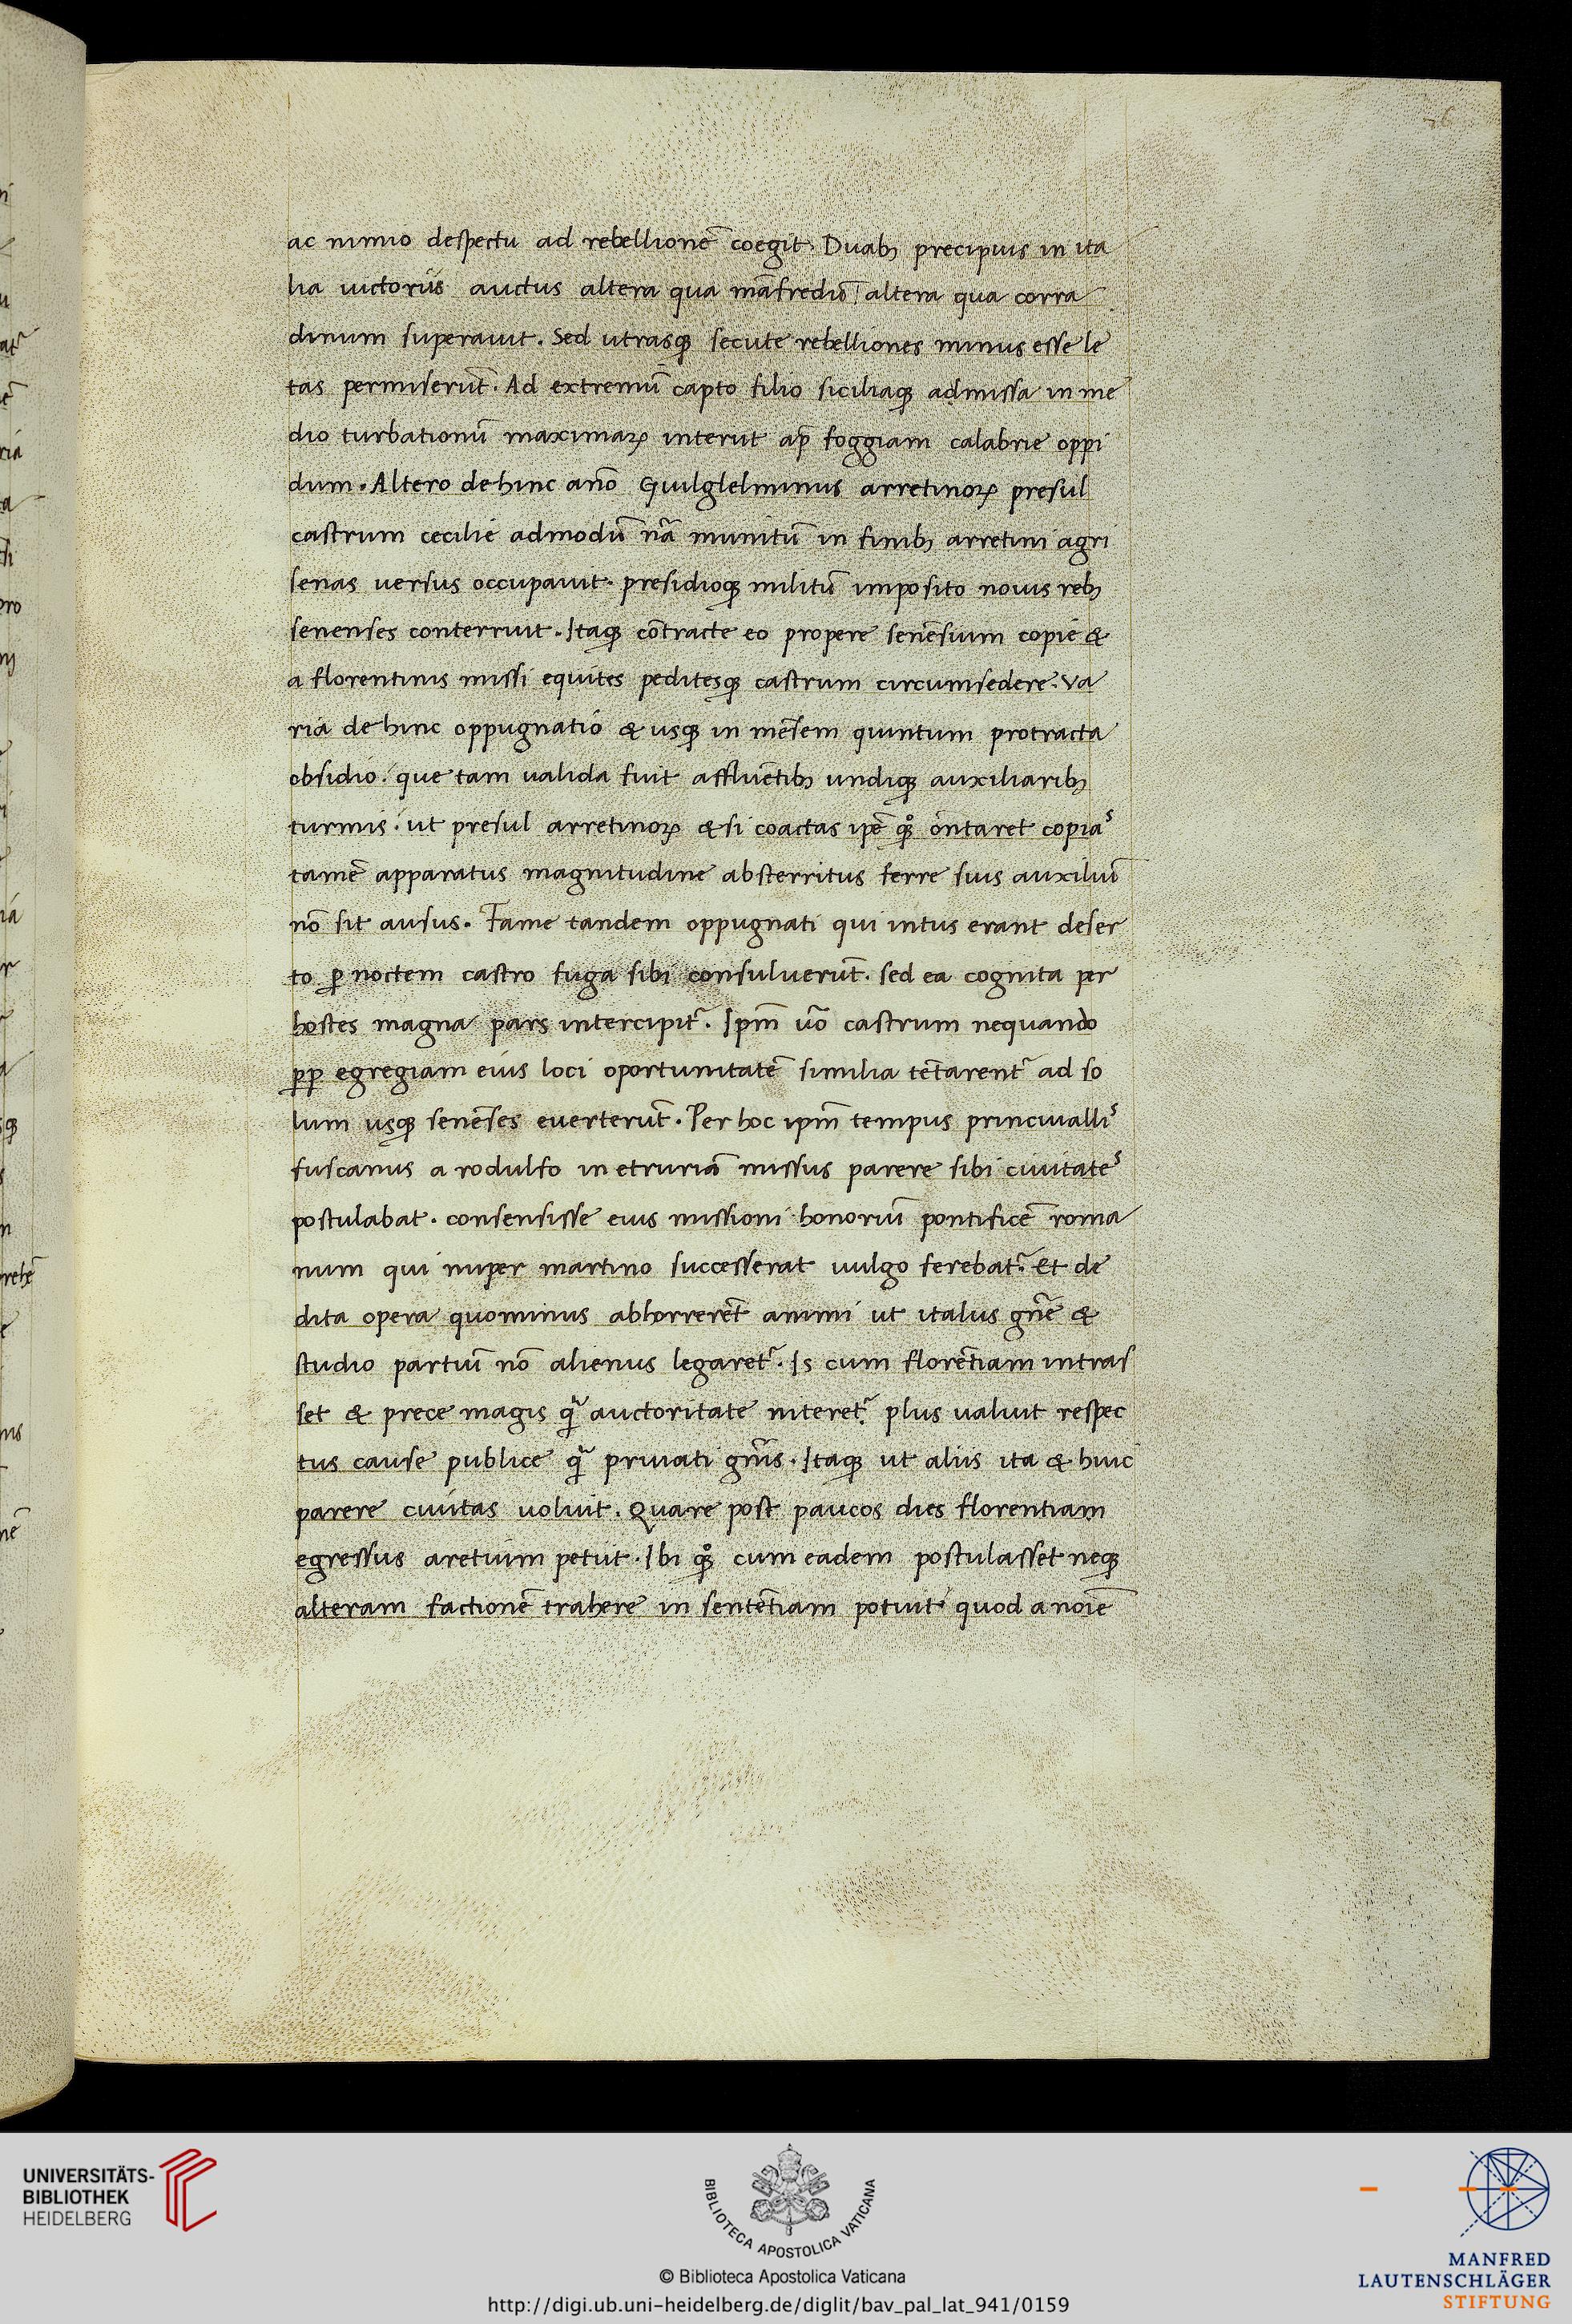 76
ac nimio despectu ad rebellionē coegit. Duabꝫ precipuis in ita
lia uictoriis auctus altera qua mãfredũ altera qua corra
dinum superauit. Sed utrasqꝫ secute rebelliones minus esse le
tas permiserũt. Ad extremũ capto filio siciliaqꝫ admissa in me
dio turbationũ maximaꝝ interiit ap̄ foggiam calabrie oppi
dum. Altero dehinc año Guilglelminus arretinoꝝ presul
castrum cecilie admodũ nã munitũ in finibꝫ arretini agri
senas versus occupauit. presidioqꝫ militũ imposito nouis rebꝫ
senenses conterruit. Itaqꝫ cõtracte eo propere senẽsium copie &
a florentinis missi equites peditesqꝫ castrum circumsedere. va
ria dehinc oppugnatio & usqꝫ in mẽsem quintum protracta
obsidio. que tam ualida fuit affluẽtibꝫ undiqꝫ auxiliaribꝫ
turmis. ut presul arretinoꝝ & si coactas ip̃e qꝫ° õntaret copias
tamẽ apparatus magnitudine absterritus ferre suis auxiliũ
nõ sit ausus. Fame tandem oppugnati qui intus erant deser
to ꝑ noctem castro fuga sibi consuluerũt. sed ea cognita per
hostes magna pars intercipit᷑. Ip̃m ũo castrum nequando
ꝓꝑ egregiam eius loci oportunitatẽ similia tẽtarent᷑ ad so
lum usqꝫ senẽses euerterũt. Per hoc ip̃m tempus princiuallis
fuscanus a rodulfo in etruriã missus parere sibi ciuitates
postulabat. consensisse eius missioni honoriũ pontificẽ roma
num qui nuper martino successerat uulgo ferebat᷑. Et de
dita opera quominus abhorrerẽt animi ut italus gñe &
studio partiũ nõ alienus legaret᷑. Is cum florẽtiam intras
set & prece magis q̃ auctoritate niteret᷑. plus ualuit respec
tus cause publice q̃ priuati gñis. Itaqꝫ ut aliis ita & huic
parere ciuitas uoluit. Quare post paucos dies florentiam
egressus aretium petiit. Ibi qꝫ° cum eadem postulasset neqꝫ
alteram factionẽ trahere in sentẽtiam potuit quod a noĩe
UNIVERSITÄTS-
BIBLIOTHEK
HEIDELBERG
BIBLIOTECA APOSTOLICA VATICANA
© Biblioteca Apostolica Vaticana
http://digi.ub.uni-heidelberg.de/diglit/bav_pal_lat_941/0159
MANFRED
LAUTENSCHLÄGER
STIFTUNG